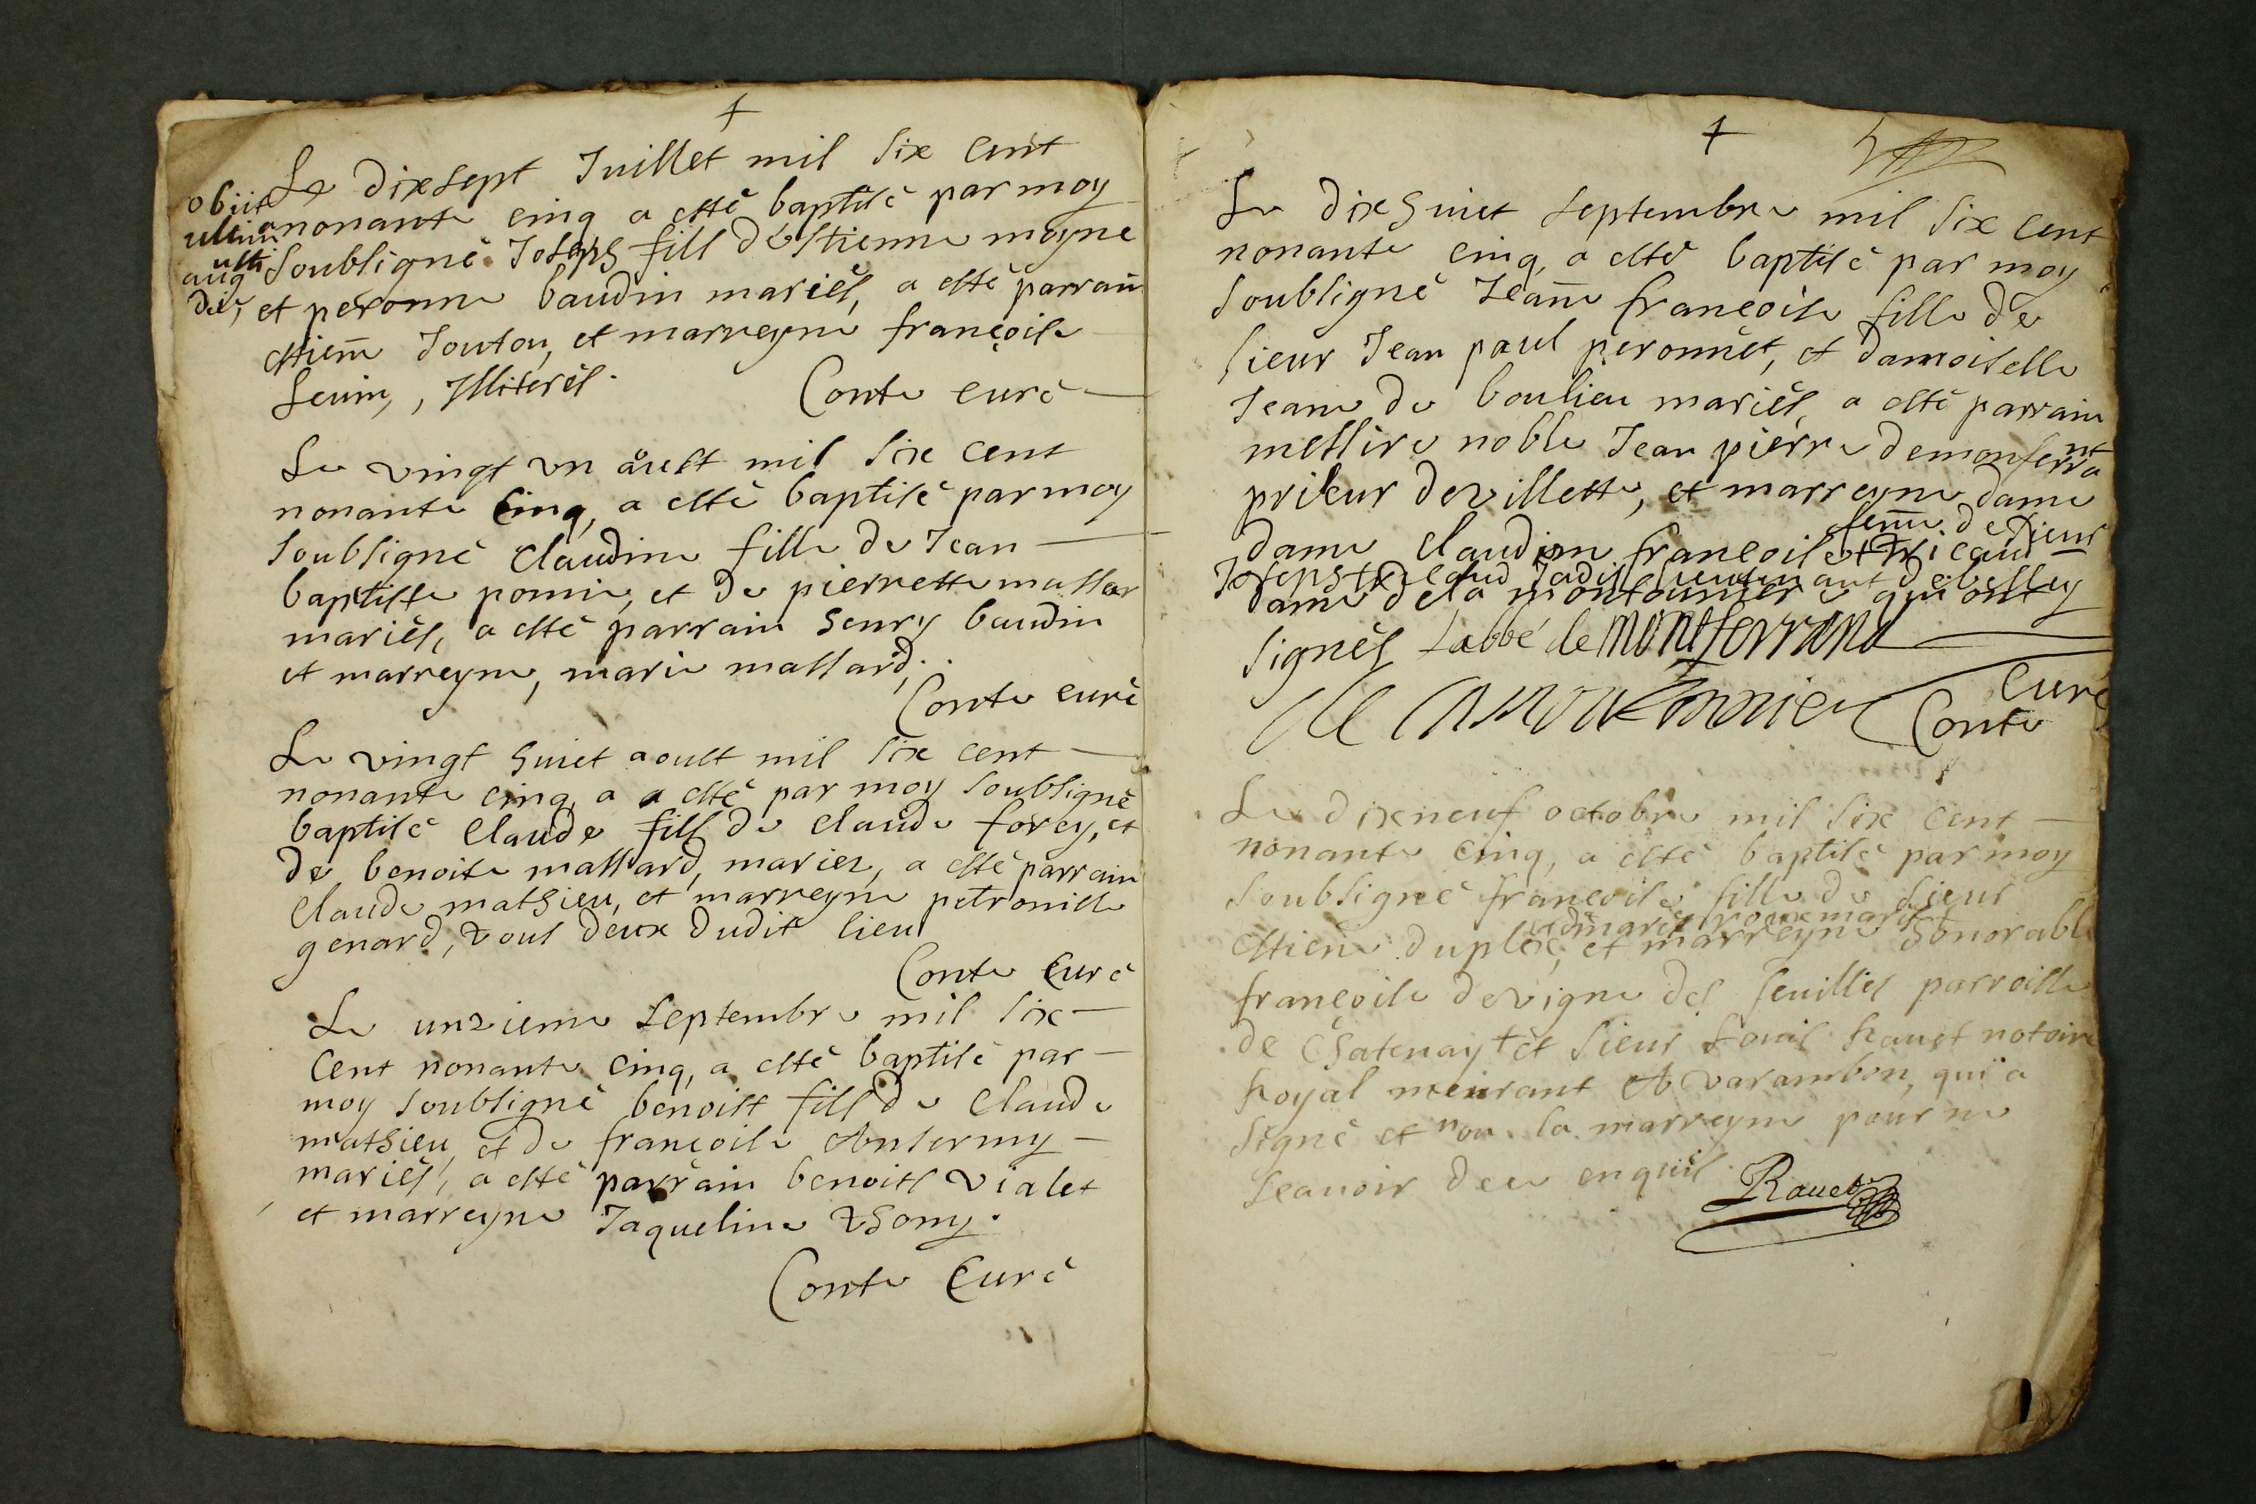 +
obiit
ultima
aug
die,
Le dixsept Juillet mil six cent
nonante cinq a esté baptisé par moy
soubsigné Joseph fils d'estienne moyne
et peronne baudin mariés, a esté parrain
estienn Joutou, et marreyne françoise
seuin, , Illiterés.
Conte curé
Le vingt vn aust mil six cent
nonante cinq, a esté baptisé par moy
soubsigné Claudine fille de Jean
baptiste pomin, et de pierrette massar
mariés, a esté parrain henry baudin
et marreyne, marie massard,.
Conte curé
Le vingt huiet aoust mil six cent
nonante cinq, a a esté par moy soubsigné
baptisé Claude fils de Claude forey, et
de benoite massard, mariez, a esté parrain
Claude mathieu, et marreyne petronille
genard, tous deux dudit lieu
Conte Curé
Le unzieme septembre mil six
cent nonante cinq, a esté baptisé par
moy soubsigné benoist fils de Claude
mathieu, et de françoise Antermy
mariés, a esté parrain benoist vialet
et marreyne Jaqueline thomy.
Conte Curé
+
Le dix huiet septembre mil six cent
nonante cinq, a esté baptisé par moy
soubsigné Jeann françoise fille de
sieur Jean paul peronnet, et damoiselle
Jeane de boulieu mariés, a esté parrain
messire noble Jean pierre demonferrant
prieur devillette, et marreyne dame
femm de sieur
dame Claudine françoise tricaud
Joseph tricaud Jadis lieutenant de belley
dame dela montounier qui ont
signés Labbé de montferrand
de Lamoutonnier
Curé
Conte
Le dixneuf octobre mil six cent
nonante cinq, a esté baptisé par moy
soubsigné françoise fille de sieur
etdmarie roux mariés
estiene dupleix, et marreyne honorable
françoise devigne des feuilles parroisse
de Chatenay + et sieur Louis Rauet notaire
Royal meurant A varambon, qui a
signé et non la marreyne pour ne
scauoir dee enquis.
Rauet